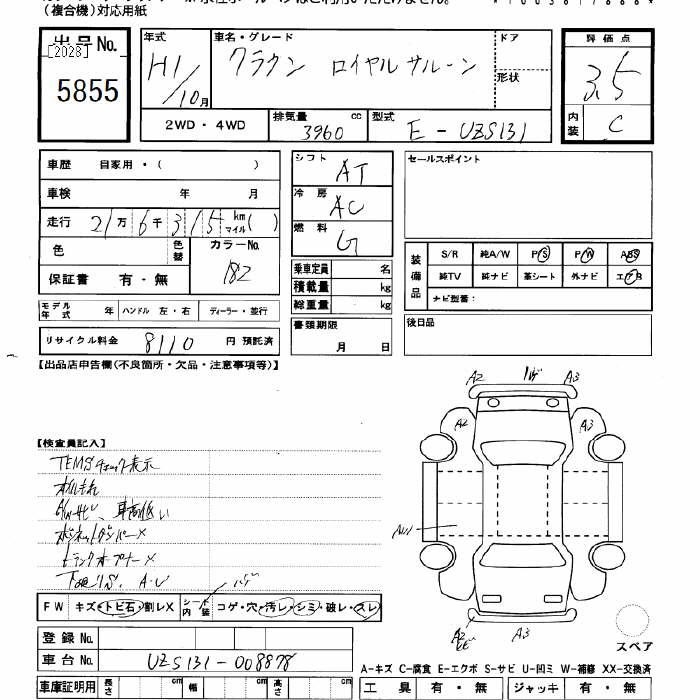 （複合機）対応用紙
出品No.
[2023]
5855
年式
H1/10月
車名・グレード
クラウン ロイヤルサルーン
ドア
形状
評価点
3.5
内装
C
2WD・4WD
排気量
3960 cc
型式
E-UZS131
車歴 自家用・( )
車検 年 月
走行 21万6千315 km マイル( )
色
色替
カラーNo.
182
保証書 有・無
モデル年式 年 ハンドル 左・右 ディーラー・並行
リサイクル料金 8110 円 預託済
シフト
AT
冷房
AC
燃料
G
乗車定員 名
積載量 kg
総重量 kg
書類期限
月 日
セールスポイント
装備品
S/R 純A/W P/S P/W ABS
純TV 純ナビ 革シート 外ナビ エアB
ナビ型番：
後日品
【出品店申告欄(不良箇所・欠品・注意事項等)】
【検査員記入】
TEMSチェック表示
オイルもれ
A/Wサビ、車高低い
ボンネットダンパー×
トランクオープナー×
下廻りS、A・U
ハゲ
FW キズ・トビ石・割レX
シート内装 コゲ・穴・汚レ・シミ・破レ・スレ
登録No.
車台No. UZS131-008878
車庫証明用 長さ cm 幅 cm 高さ cm
A2 ハゲ A3
A2 A3
AU1
A2 A3
スペア
A-キズ C-腐食 E-エクボ S-サビ U-凹ミ W-補修 XX-交換済
工具 有・無 ジャッキ 有・無